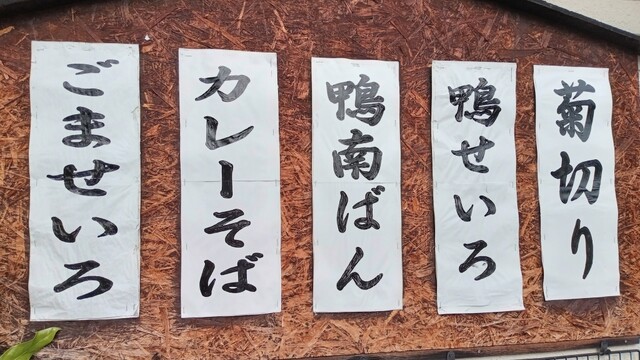 菊切り
鴨せいろ
鴨南ばん
カレーそば
ごませいろ